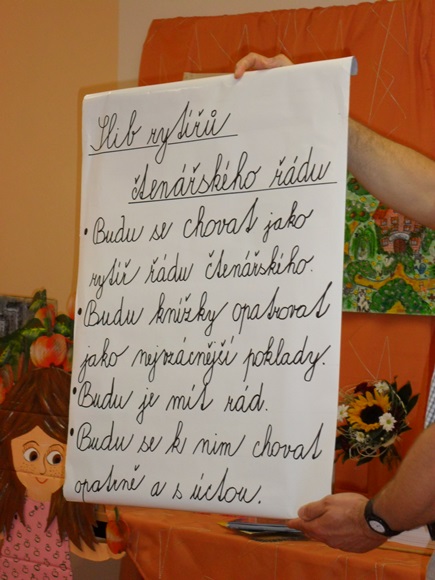 Slib rytířů
čtenářského řádu
• Budu se chovat jako
rytíř řádu čtenářského.
• Budu knížky opatrovat
jako nejvzácnější poklady.
• Budu je mít rád.
• Budu se k nim chovat
opatrně a s úctou.